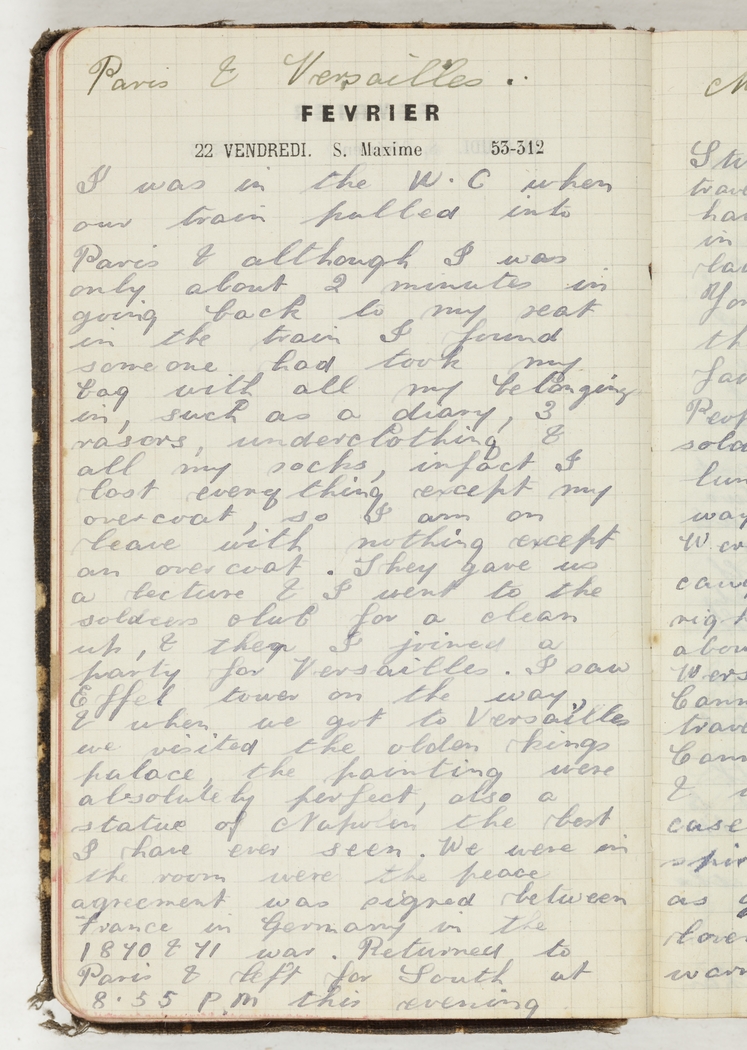 Paris & Versailles.
FEVRIER
22 VENDREDI. S. Maxime 53-312
I was in the W.C when
our train pulled into
Paris & although I was
only about 2 minutes in
going back to my seat
in the train I found
someone had took my
bag with all my belonging
in, such as a diary, 3
rasors, underclothing &
all my socks, infact I
lost everything except my
overcoat, so I am on
leave with nothing except
an overcoat. They gave us
a lecture & I went to the
soldiers club for a clean
up, & then I joined a
party for Versailles. I saw
Effel tower on the way,
& when we got to Versailles
we visited the olden kings
palace, the painting were
absolutely perfect, also a
statue of Napolen the best
I have ever seen. We were in
the room were the peace
agreement was signed between
France in Germany in the
1870 & 71 war. Returned to
Paris & left for South at
8.55 P.M this evening